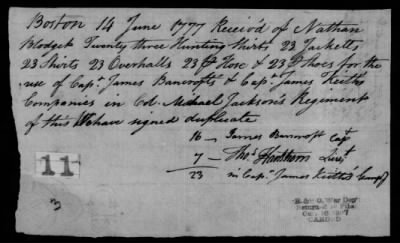 Boston 14 June 1777 Receiod of Nathan
Blodget Twenty three Hunting Shirts 23 Jacketts
23 Shirts 23 Overhalls 23 pr Hose & 23 pr Shoes for the
use of Capt. James Bancrofts & Capt. James Keiths
Companies in Col. Michael Jacksons Regiment
of this We have signed duplicate
16 — James Bancroft Capt
7 — Thos. Hartshorn Lieut
23 in Capt. James Keiths Compy
11
3
R. & P. O. War Dept.
CARDED